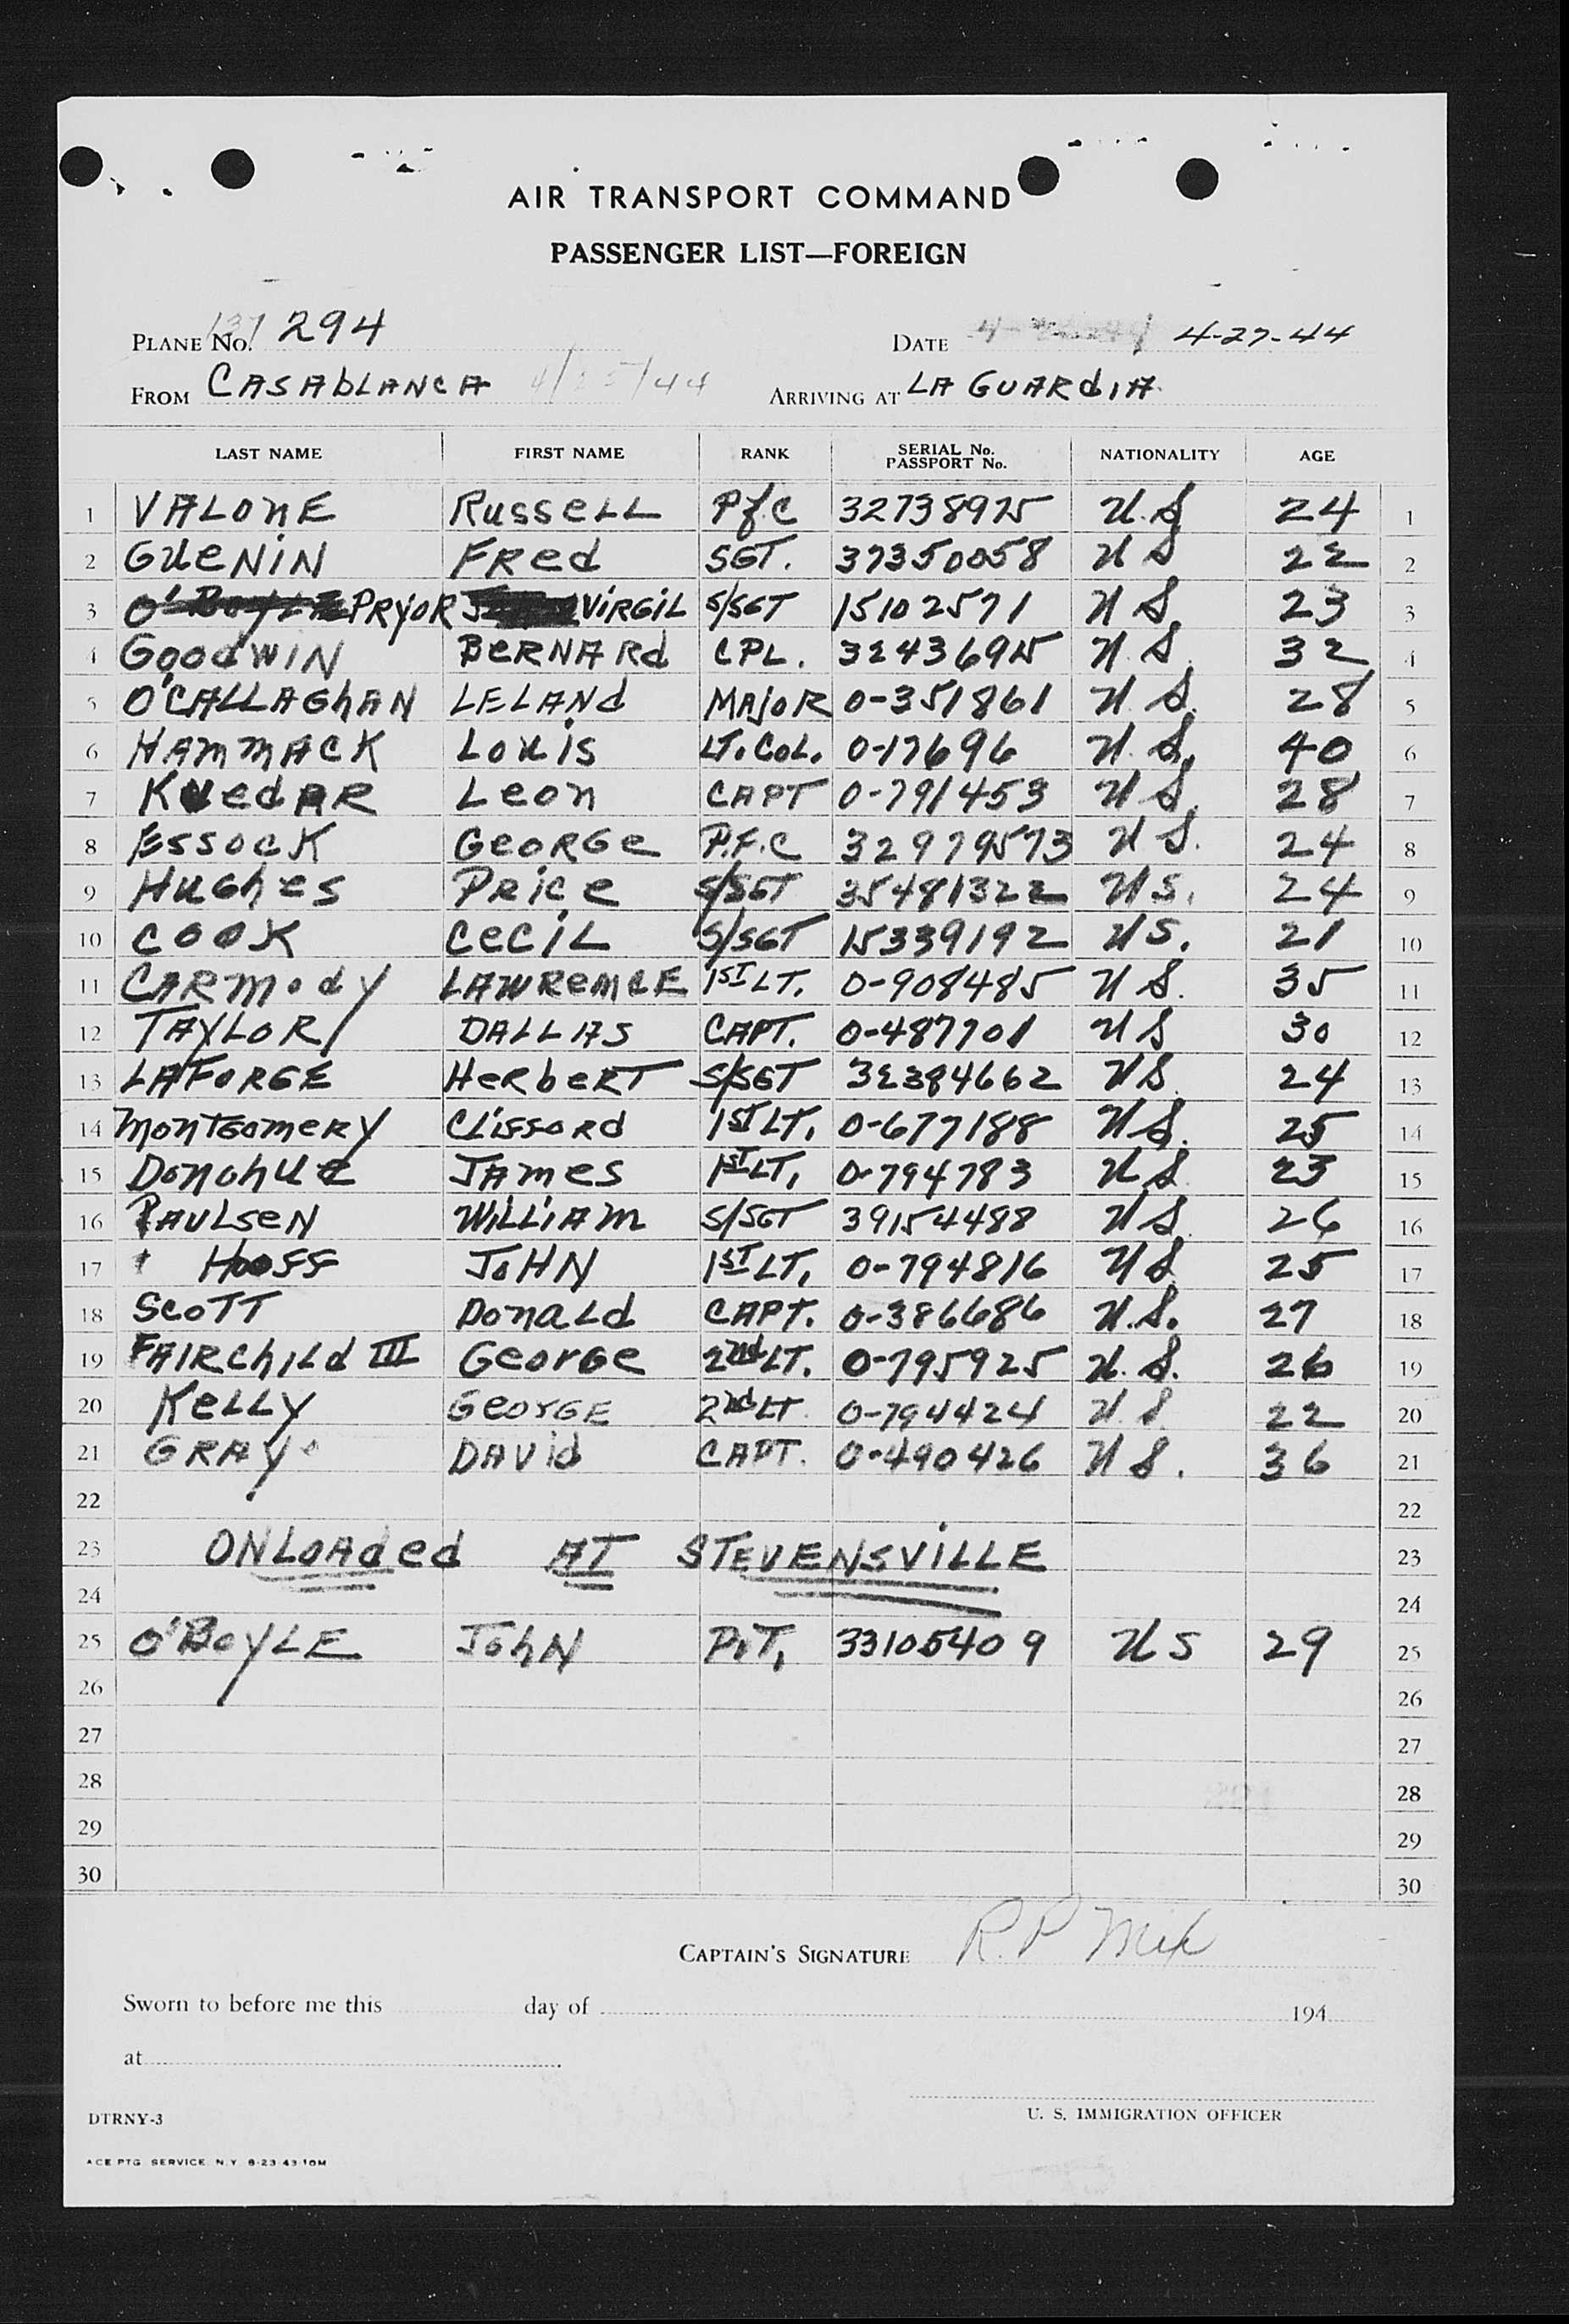 AIR TRANSPORT COMMAND
PASSENGER LIST—FOREIGN
PLANE No. 137 294 DATE 4-27-44
FROM CASABLANCA 4/25/44 ARRIVING AT LA GUARDIA
LAST NAME FIRST NAME RANK SERIAL No. PASSPORT No. NATIONALITY AGE
1 VALONE RUSSELL Pfc 32738925 U.S 24 1
2 GUENIN FRED SGT. 37350058 U S 22 2
3 O'BOYLE PRYOR VIRGIL S/SGT 15102571 U S 23 3
4 GOODWIN BERNARD CPL. 32436925 U.S. 32 4
5 O'CALLAGHAN LELAND MAJOR 0-351861 U.S. 28 5
6 HAMMACK LOUIS LT. COL. 0-17696 U.S. 40 6
7 KUEDAR LEON CAPT 0-791453 U S. 28 7
8 ESSOCK GEORGE P.F.C 32979573 U S. 24 8
9 HUGHES PRICE S/SGT 35481322 U S. 24 9
10 COOK CECIL S/SGT 15339192 U S. 21 10
11 CARMODY LAWREMCE 1ST LT. 0-908485 U S. 35 11
12 TAYLOR DALLAS CAPT. 0-487701 U S 30 12
13 LAFORGE HERBERT S/SGT 32384662 U S 24 13
14 MONTGOMERY CLIFFORD 1ST LT. 0-677188 U S. 25 14
15 DONOHUE JAMES 1ST LT. 0-794783 U S 23 15
16 PAULSEN WILLIAM S/SGT 39154488 U S 26 16
17 HOOSS JOHN 1ST LT. 0-794816 U S 25 17
18 SCOTT DONALD CAPT. 0-386686 U.S. 27 18
19 FAIRCHILD III GEORGE 2nd LT. 0-795925 U.S. 26 19
20 KELLY GEORGE 2nd LT. 0-794424 U.S 22 20
21 GRAY DAVID CAPT. 0-490426 U S. 36 21
22 22
23 ONLOADED AT STEVENSVILLE 23
24 24
25 O'BOYLE JOHN PVT. 33105409 U S 29 25
26 26
27 27
28 28
29 29
30 30
CAPTAIN'S SIGNATURE R.P. Mix
Sworn to before me this day of 194
at
U. S. IMMIGRATION OFFICER
DTRNY-3
ACE PTG. SERVICE. N.Y. 8-23-43-10M